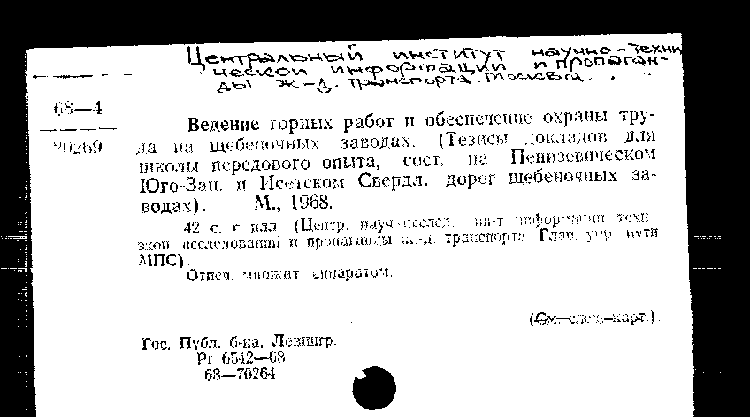 Центральный институт научно-техни
ческой информации и пропаган-
ды ж-д. транспорта. Москва.
68—4
70269
Ведение горных работ и обеспечение охраны тру-
да на щебеночных заводах. (Тезисы докладов для
школы передового опыта, сост. на Пенизевическом
Юго-Зап. и Исетском Свердл. дорог щебеночных за-
водах). М., 1968.
42 с. с илл. (Центр. науч-исслед. ин-т информации техн
исследований и пропаганды ж.-д. транспорта Глав. упр. пути
МПС).
Отпеч. множит. аппаратом.
(См. след. карт.).
Гос. Публ. б-ка, Ленингр.
Рг 6542—68
68—70264